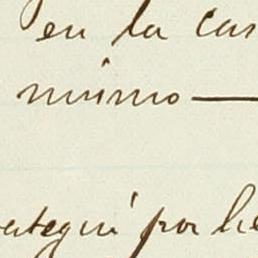 en la cas
mismo —
ategui por he